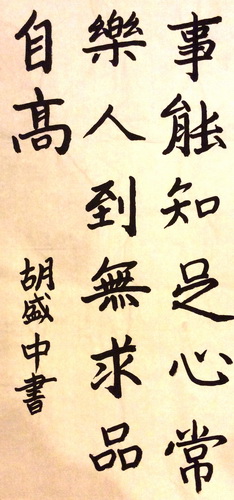 事能知足心常
樂人到無求品
自高
胡盛中書